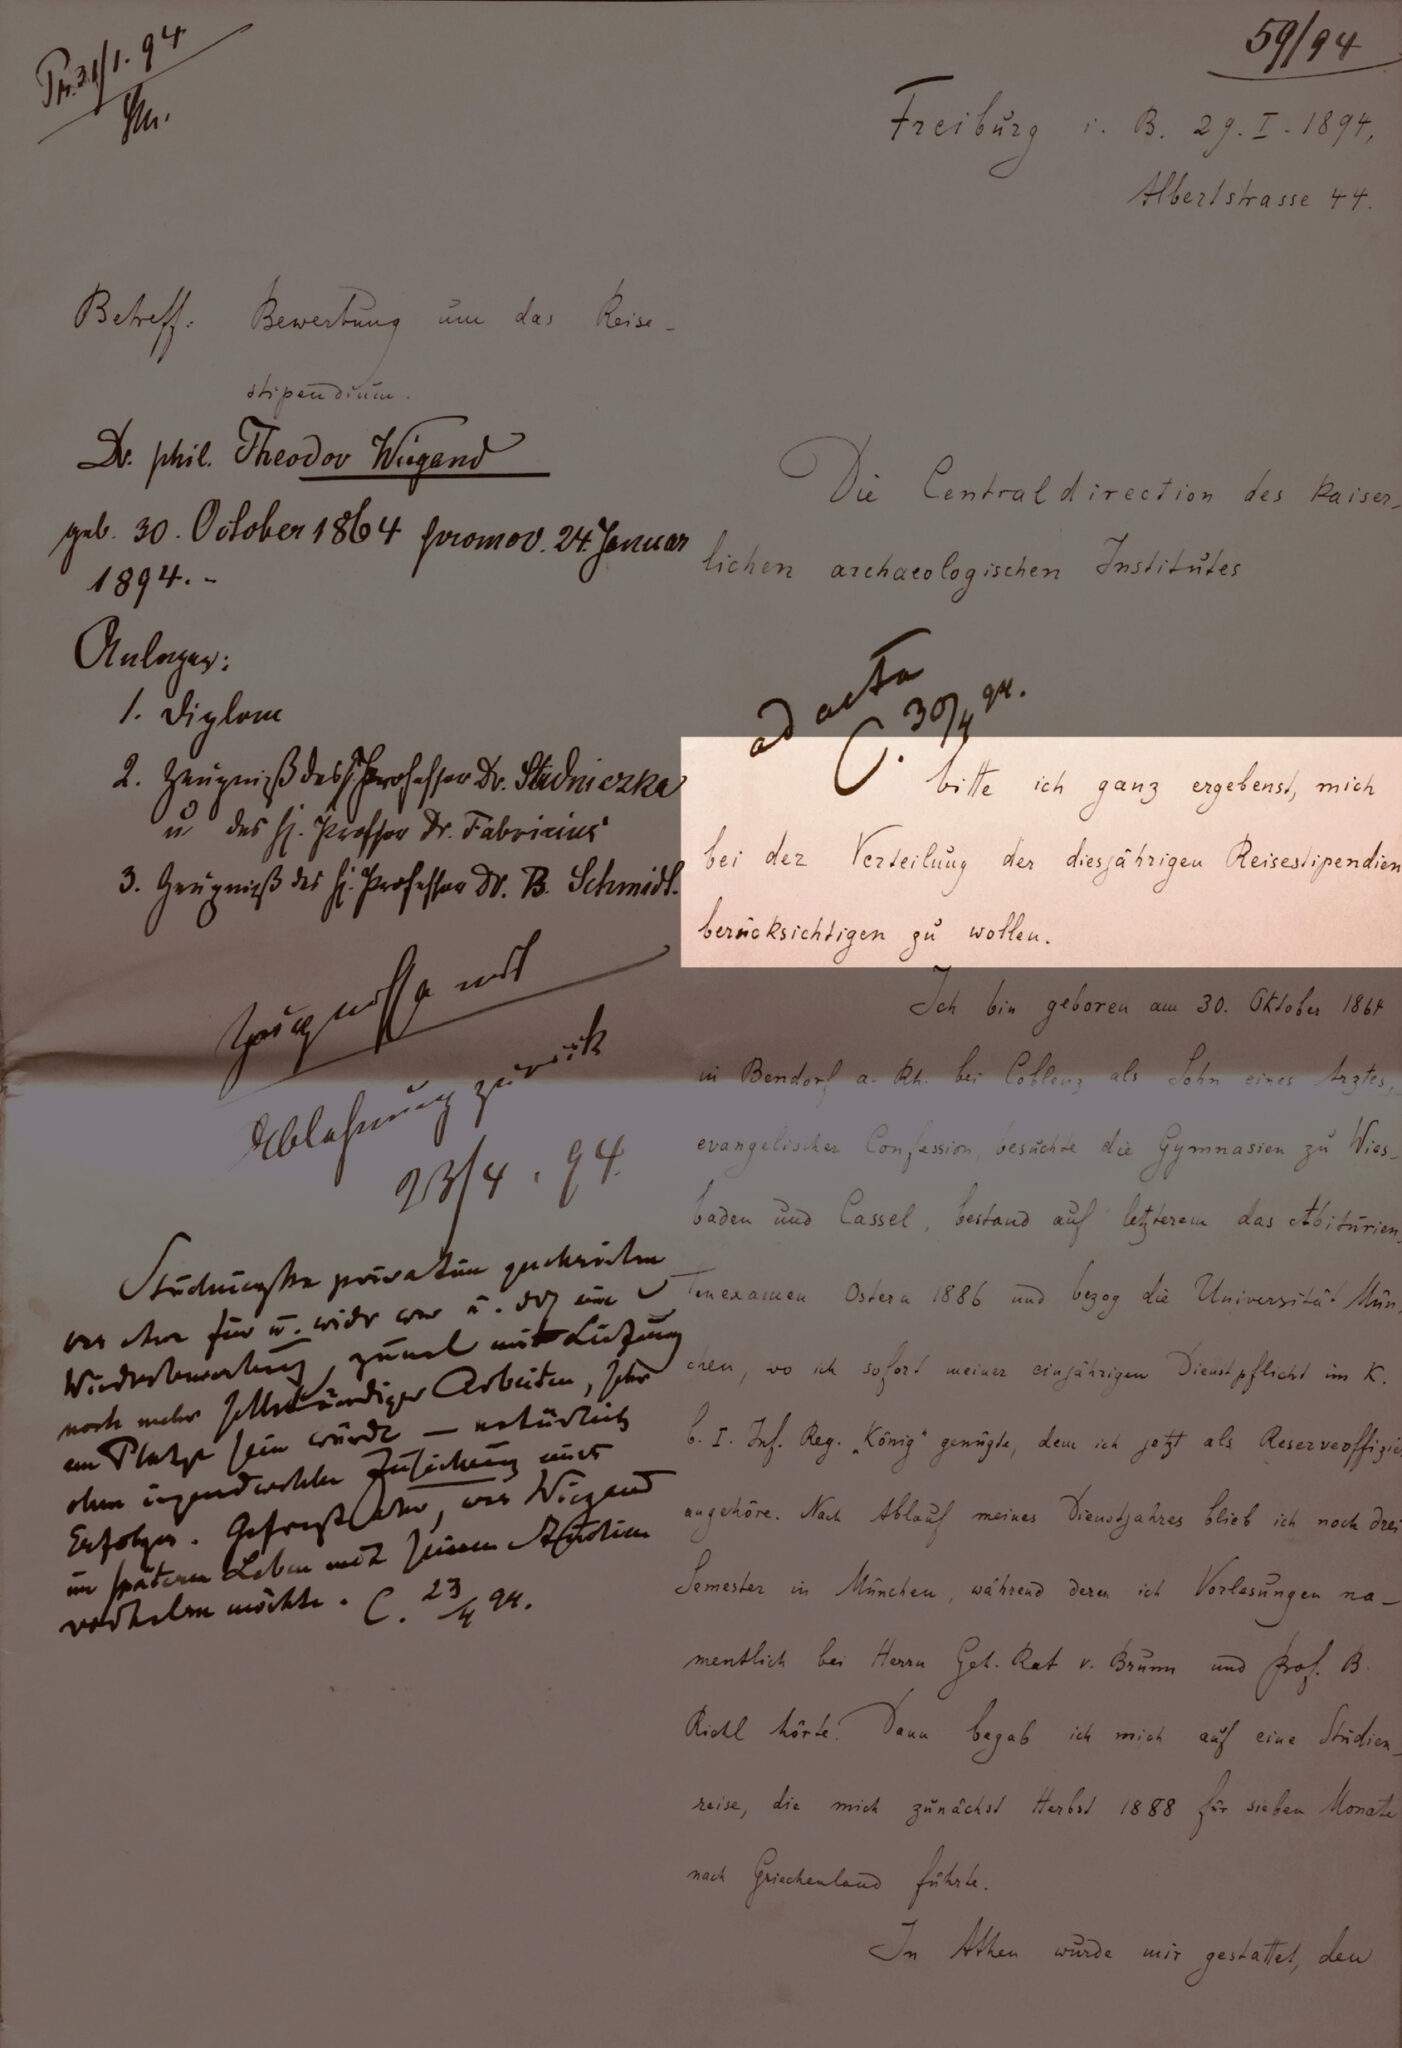 59/94
Pr. 31/1. 94
Freiburg i. B. 29. I. 1894,
Albertstrasse 44.
Betreff: Bewerbung um das Reise-
stipendium.
Dr. phil. Theodor Wiegand
geb. 30. October 1864 promov. 24. Januar
1894.-
Anlagen:
1. Diplom
2. Zeugniß des H. Professor Dr. Studniczka
u des H. Professor Dr. Fabricius
3. Zeugniß des H. Professor Dr. B. Schmidt.
Zeugnisse mit
Ablehnung zurück
23/4. 94.
Studniczka privatim geschrieben
was etwa für u. wider war u. daß eine
Wiederbewerbung, zumal mit Lieferung
noch mehr selbständiger Arbeiten, sehr
am Platze sein würde — natürlich
ohne irgendwelche Zusicherung eines
Erfolges. Gefragt aber, was Wiegand
im spätern Leben mit seinen Studien
möchte. C. 23/4 94.
Die Centraldirection des Kaiser-
lichen archaeologischen Institutes
ad acta
C. 30/4 94.
bitte ich ganz ergebenst, mich
bei der Verteilung der diesjährigen Reisestipendien
berücksichtigen zu wollen.
Ich bin geboren am 30. Oktober 1864
in Bendorf a. Rh. bei Coblenz als Sohn eines Arztes,
evangelischer Confession, besuchte die Gymnasien zu Wies-
baden und Cassel, bestand auf letzterem das Abiturien-
tenexamen Ostern 1886 und bezog die Universität Mün-
chen, wo ich sofort meiner einjährigen Dienstpflicht im K.
b. I. Inf. Reg. „König" genügte, dem ich jetzt als Reserveoffizier
angehöre. Nach Ablauf meines Dienstjahres blieb ich noch drei
Semester in München, während deren ich Vorlesungen na-
mentlich bei Herrn Geh. Rat v. Brunn und Prof. B.
Riehl hörte. Dann begab ich mich auf eine Studien-
reise, die mich zunächst Herbst 1888 für sieben Monate
nach Griechenland führte.
In Athen wurde mir gestattet, den